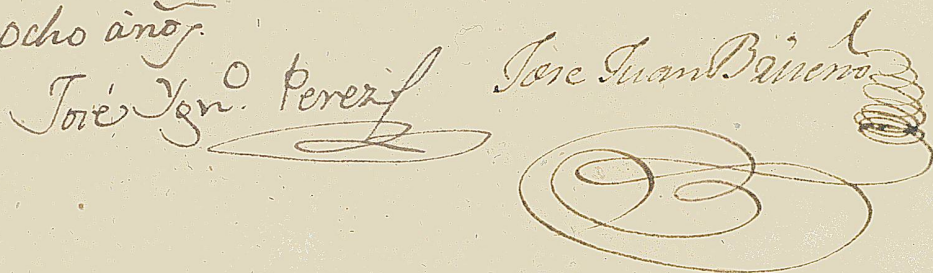 ocho años.
José Ygn.º Perez
Jose Juan Bueno